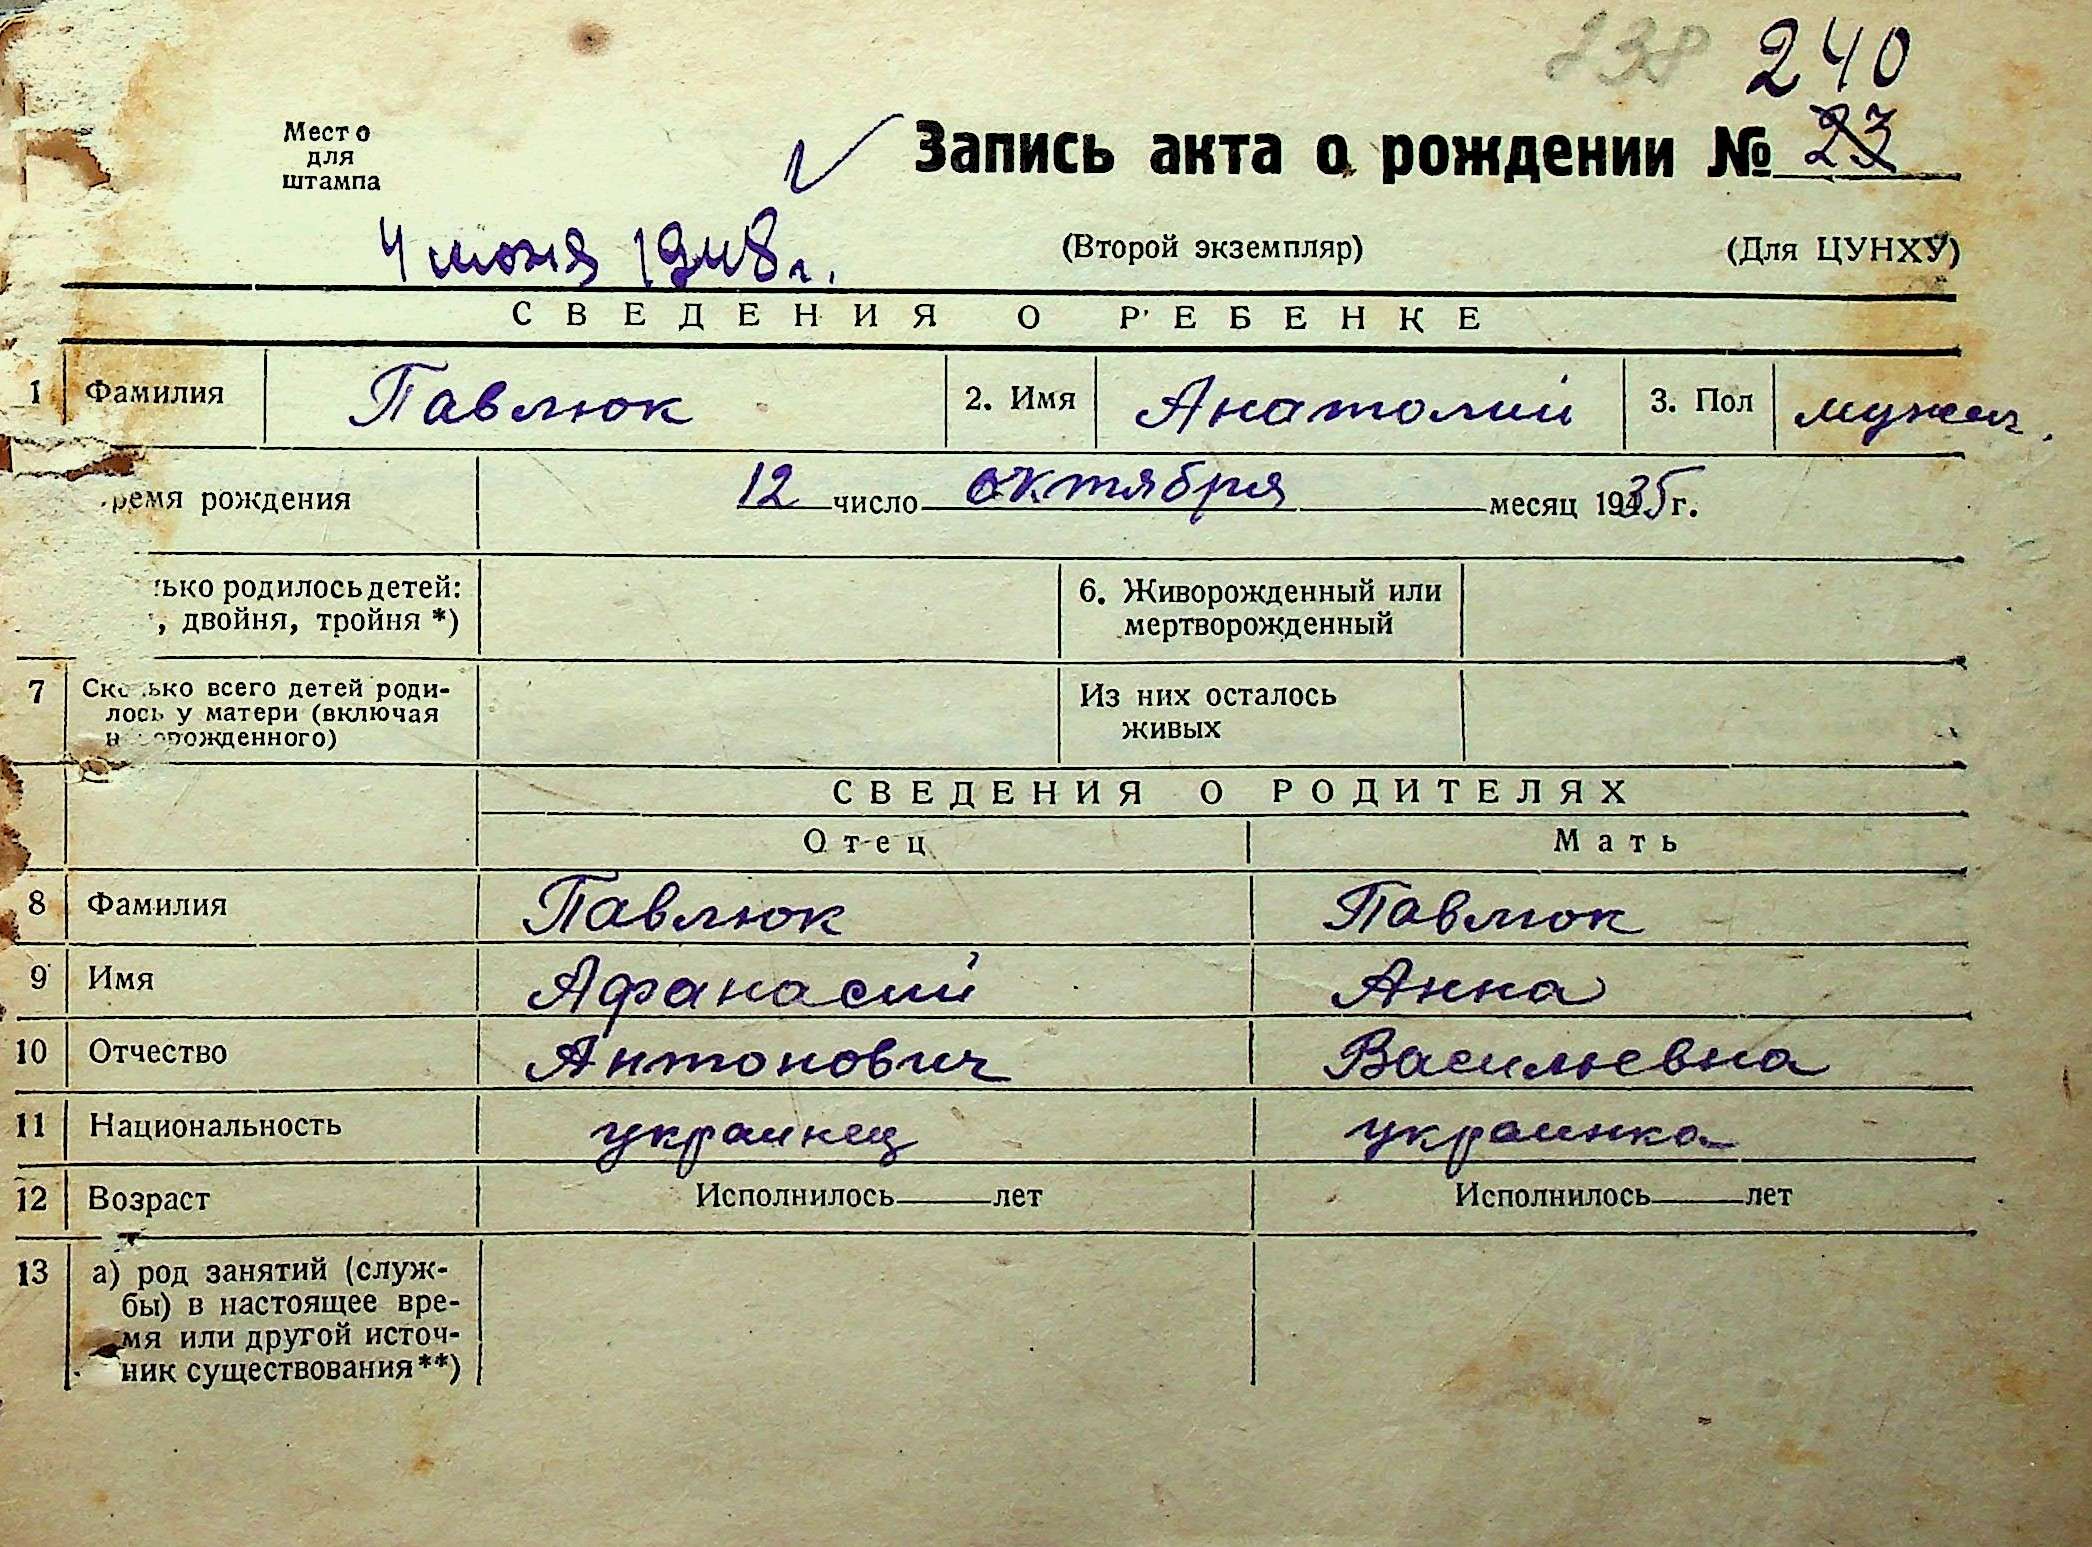 238 240
Место
для
штампа
Запись акта о рождении № 23
4 июня 1948 г.
(Второй экземпляр)
(Для ЦУНХУ)
СВЕДЕНИЯ О РЕБЕНКЕ
1 Фамилия Павлюк 2. Имя Анатолий 3. Пол мужск.
ремя рождения 12 число октября месяц 1935 г.
лько родилось детей:
, двойня, тройня *)
6. Живорожденный или
мертворожденный
7 Сколько всего детей роди-
лось у матери (включая
новорожденного)
Из них осталось
живых
СВЕДЕНИЯ О РОДИТЕЛЯХ
Отец Мать
8 Фамилия Павлюк Павлюк
9 Имя Афанасий Анна
10 Отчество Антонович Васильевна
11 Национальность украинец украинка
12 Возраст Исполнилось лет Исполнилось лет
13 а) род занятий (служ-
бы) в настоящее вре-
мя или другой источ-
ник существования**)